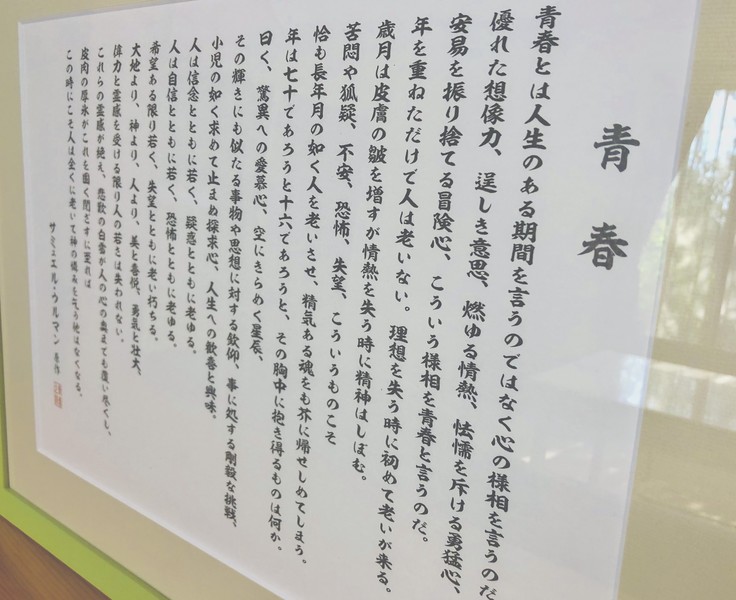 青春
青春とは人生のある期間を言うのではなく心の様相を言うのだ
優れた想像力、逞しき意思、燃ゆる情熱、怯懦を斥ける勇猛心、
安易を振り捨てる冒険心、こういう様相を青春と言うのだ。
年を重ねただけで人は老いない。理想を失う時に初めて老いが来る。
歳月は皮膚の皺を増すが情熱を失う時に精神はしぼむ。
苦悶や狐疑、不安、恐怖、失望、こういうものこそ
恰も長年月の如く人を老いさせ、精気ある魂をも芥に帰せしめてしまう。
年は七十であろうと十六であろうと、その胸中に抱き得るものは何か。
曰く、驚異への愛慕心、空にきらめく星辰、
その輝きにも似たる事物や思想に対する欽仰、事に処する剛毅な挑戦、
小児の如く求めて止まぬ探求心、人生への歓喜と興味。
人は信念とともに若く、疑惑とともに老ゆる。
人は自信とともに若く、恐怖とともに老ゆる。
希望ある限り若く、失望とともに老い朽ちる。
大地より、神より、人より、美と喜悦、勇気と壮大、
偉力と霊感を受ける限り人の若さは失われない。
これらの霊感が絶え、悲歎の白雪が人の心の奥までも覆い尽くし、
皮肉の厚氷がこれを固く閉ざすに至れば
この時にこそ人は全くに老いて神の憐みを乞う他はなくなる。
サミュエル・ウルマン 原作